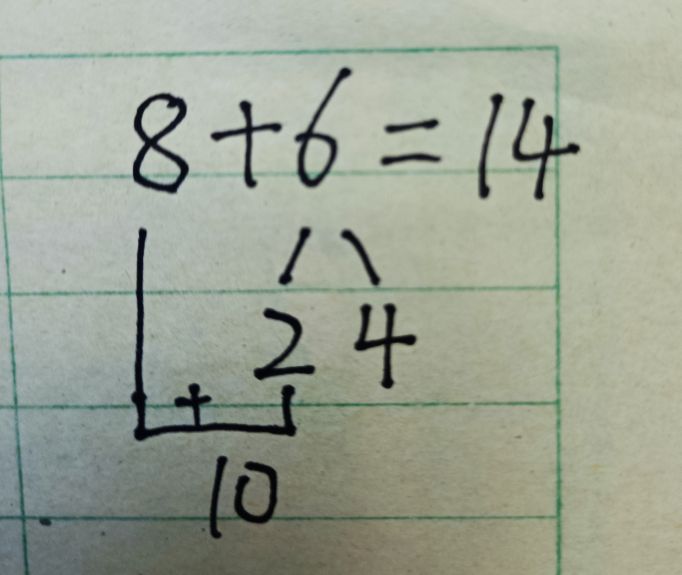 8+6=14
2 4
+
10